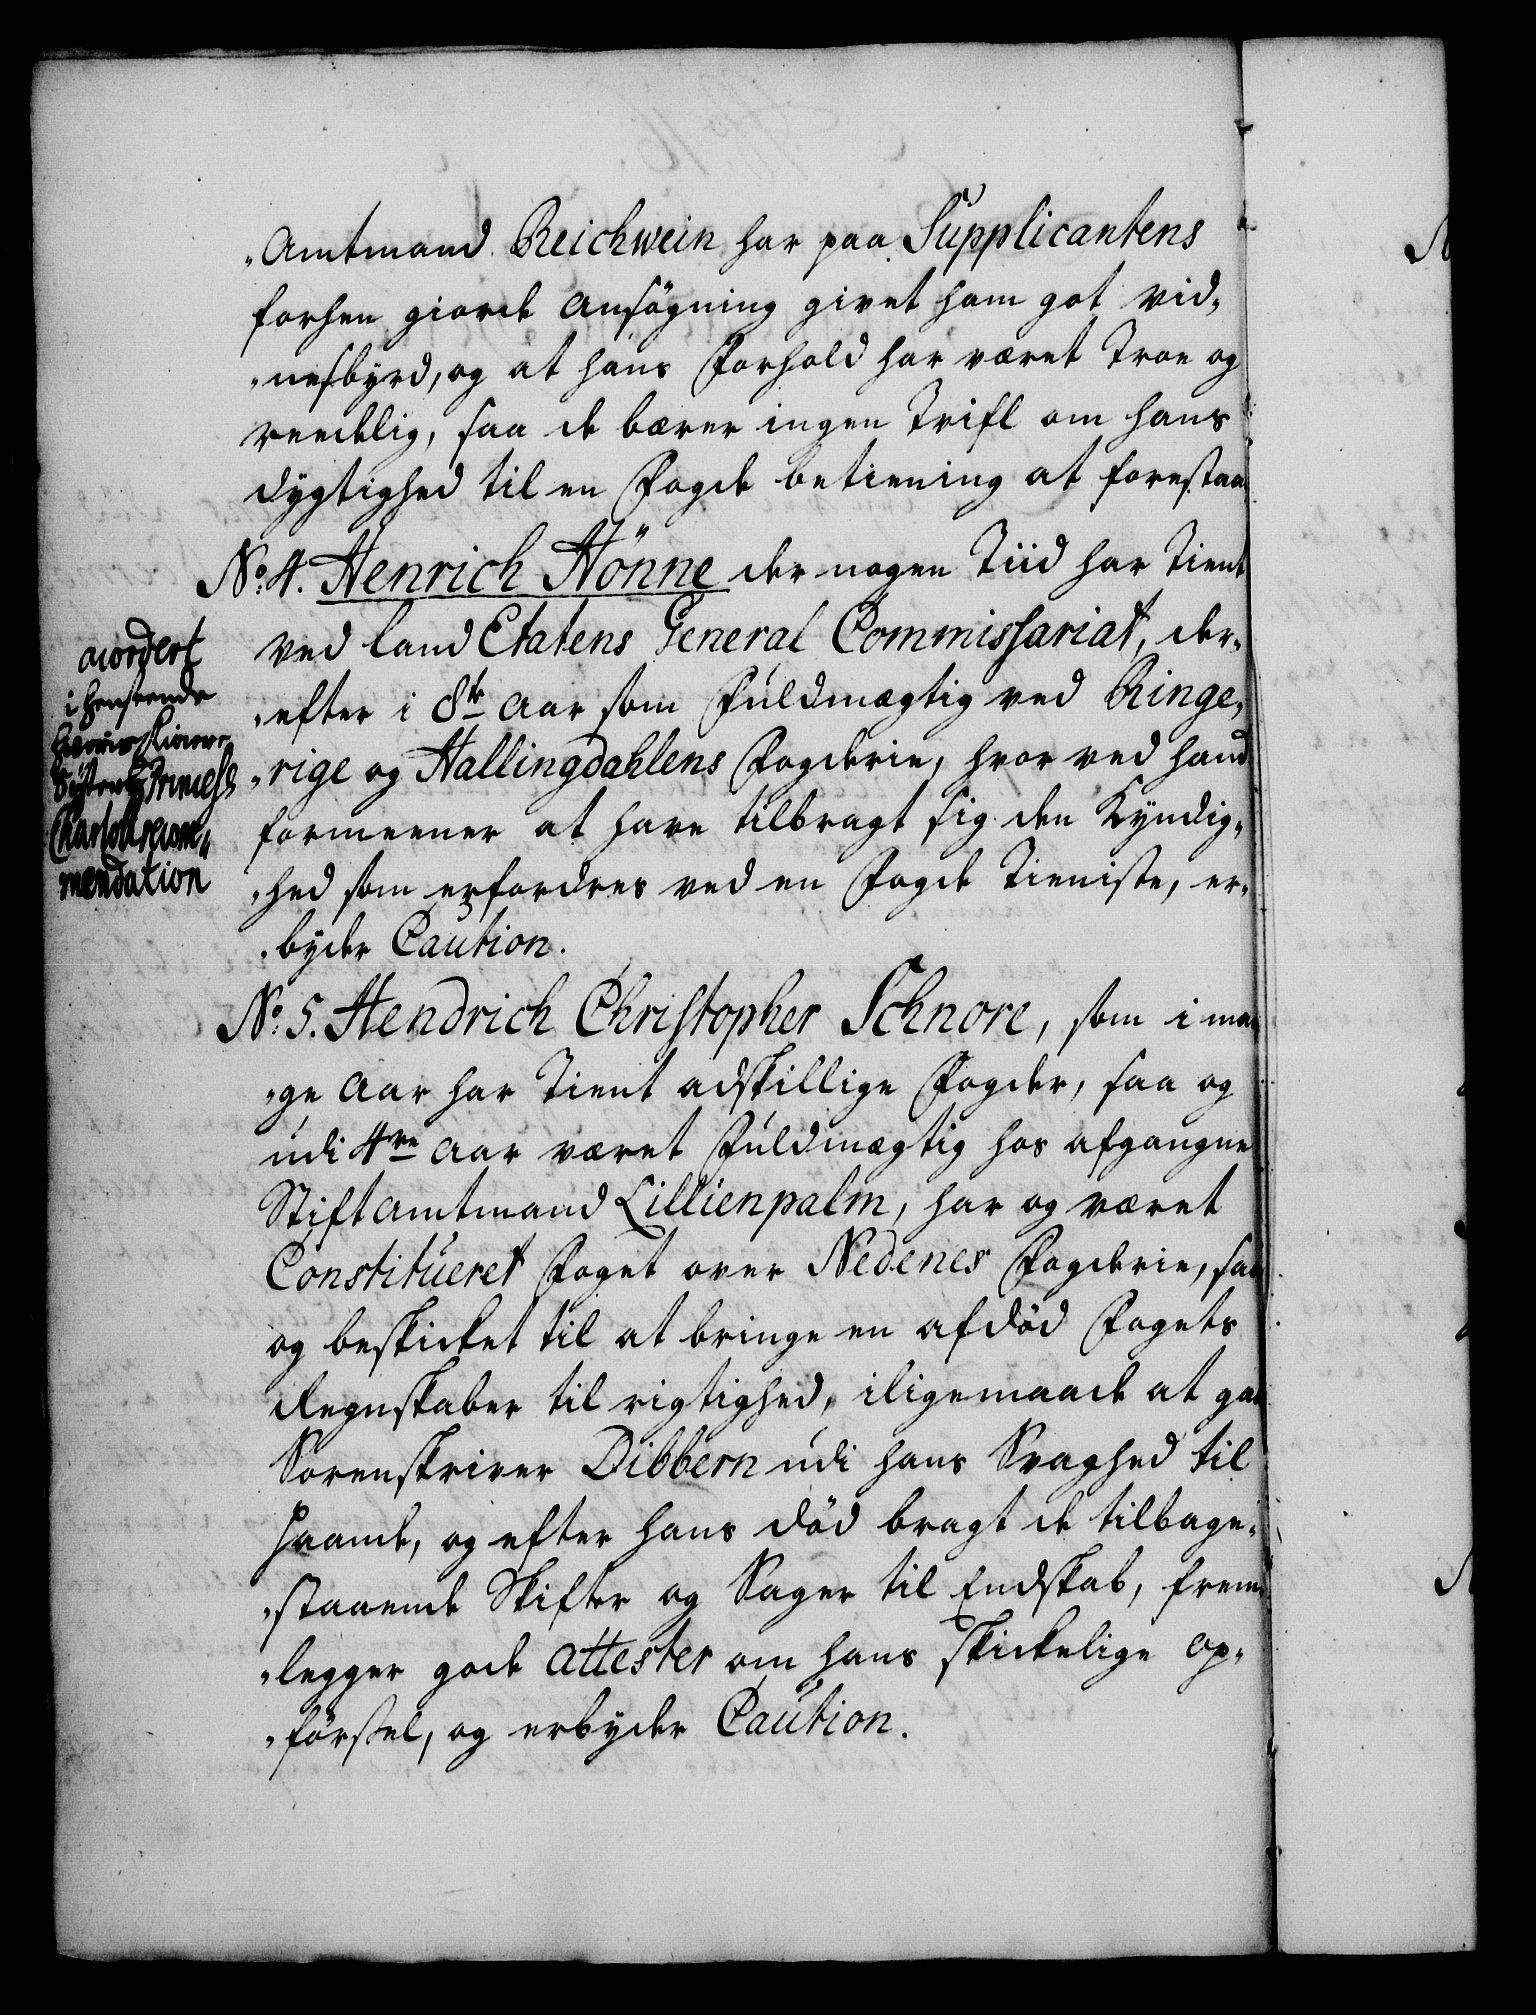 "Amtmand Reichwein har paa Supplicantens
forhen giorde Ansögning givet ham got vid„
„nesbyrd, og at hans Forhold har været Troe og
reedelig, saa de bærer ingen Tvifl om hans
dygtighed til en Fogde betiening at forestaa
No: 4. Henrich Hönne der nogen Tiid har Tient
ved land Etatens General Commissariat, der„
„efter i 8te Aar som Fuldmægtig ved Ringe„
„rige og Hallingdahlens Fogderie, hvor ved hand
formeener at have tilbragt sig den Kyndig„
„hed som erfordres ved en Fogde Tieniste, er„
„byder Caution.
accordert
i henseende
Kiere
Princess
Charlott recom„
mendation
No: 5. Hendrich Christopher Schnore, som i man
„ge Aar har Tient adskillige Fogder, saa og
udi 4re Aar været Fuldmægtig hos afgangne
Stiftamtmand Lillienpalm, har og været
Constitueret Foget over Nedenes Fogderie, saa
og beskicket til at bringe en afdöd Fogets
Regnskaber til rigtighed, iligemaade at gaa
Sorenskriver Dibbern udi hans Svaghed til
Haande, og efter hans död bragt de tilbage„
„staaende Skifter og Sager til Endskab, frem
„legger gode Attester om hans skickelige Op„
„förssel, og erbyder Caution.